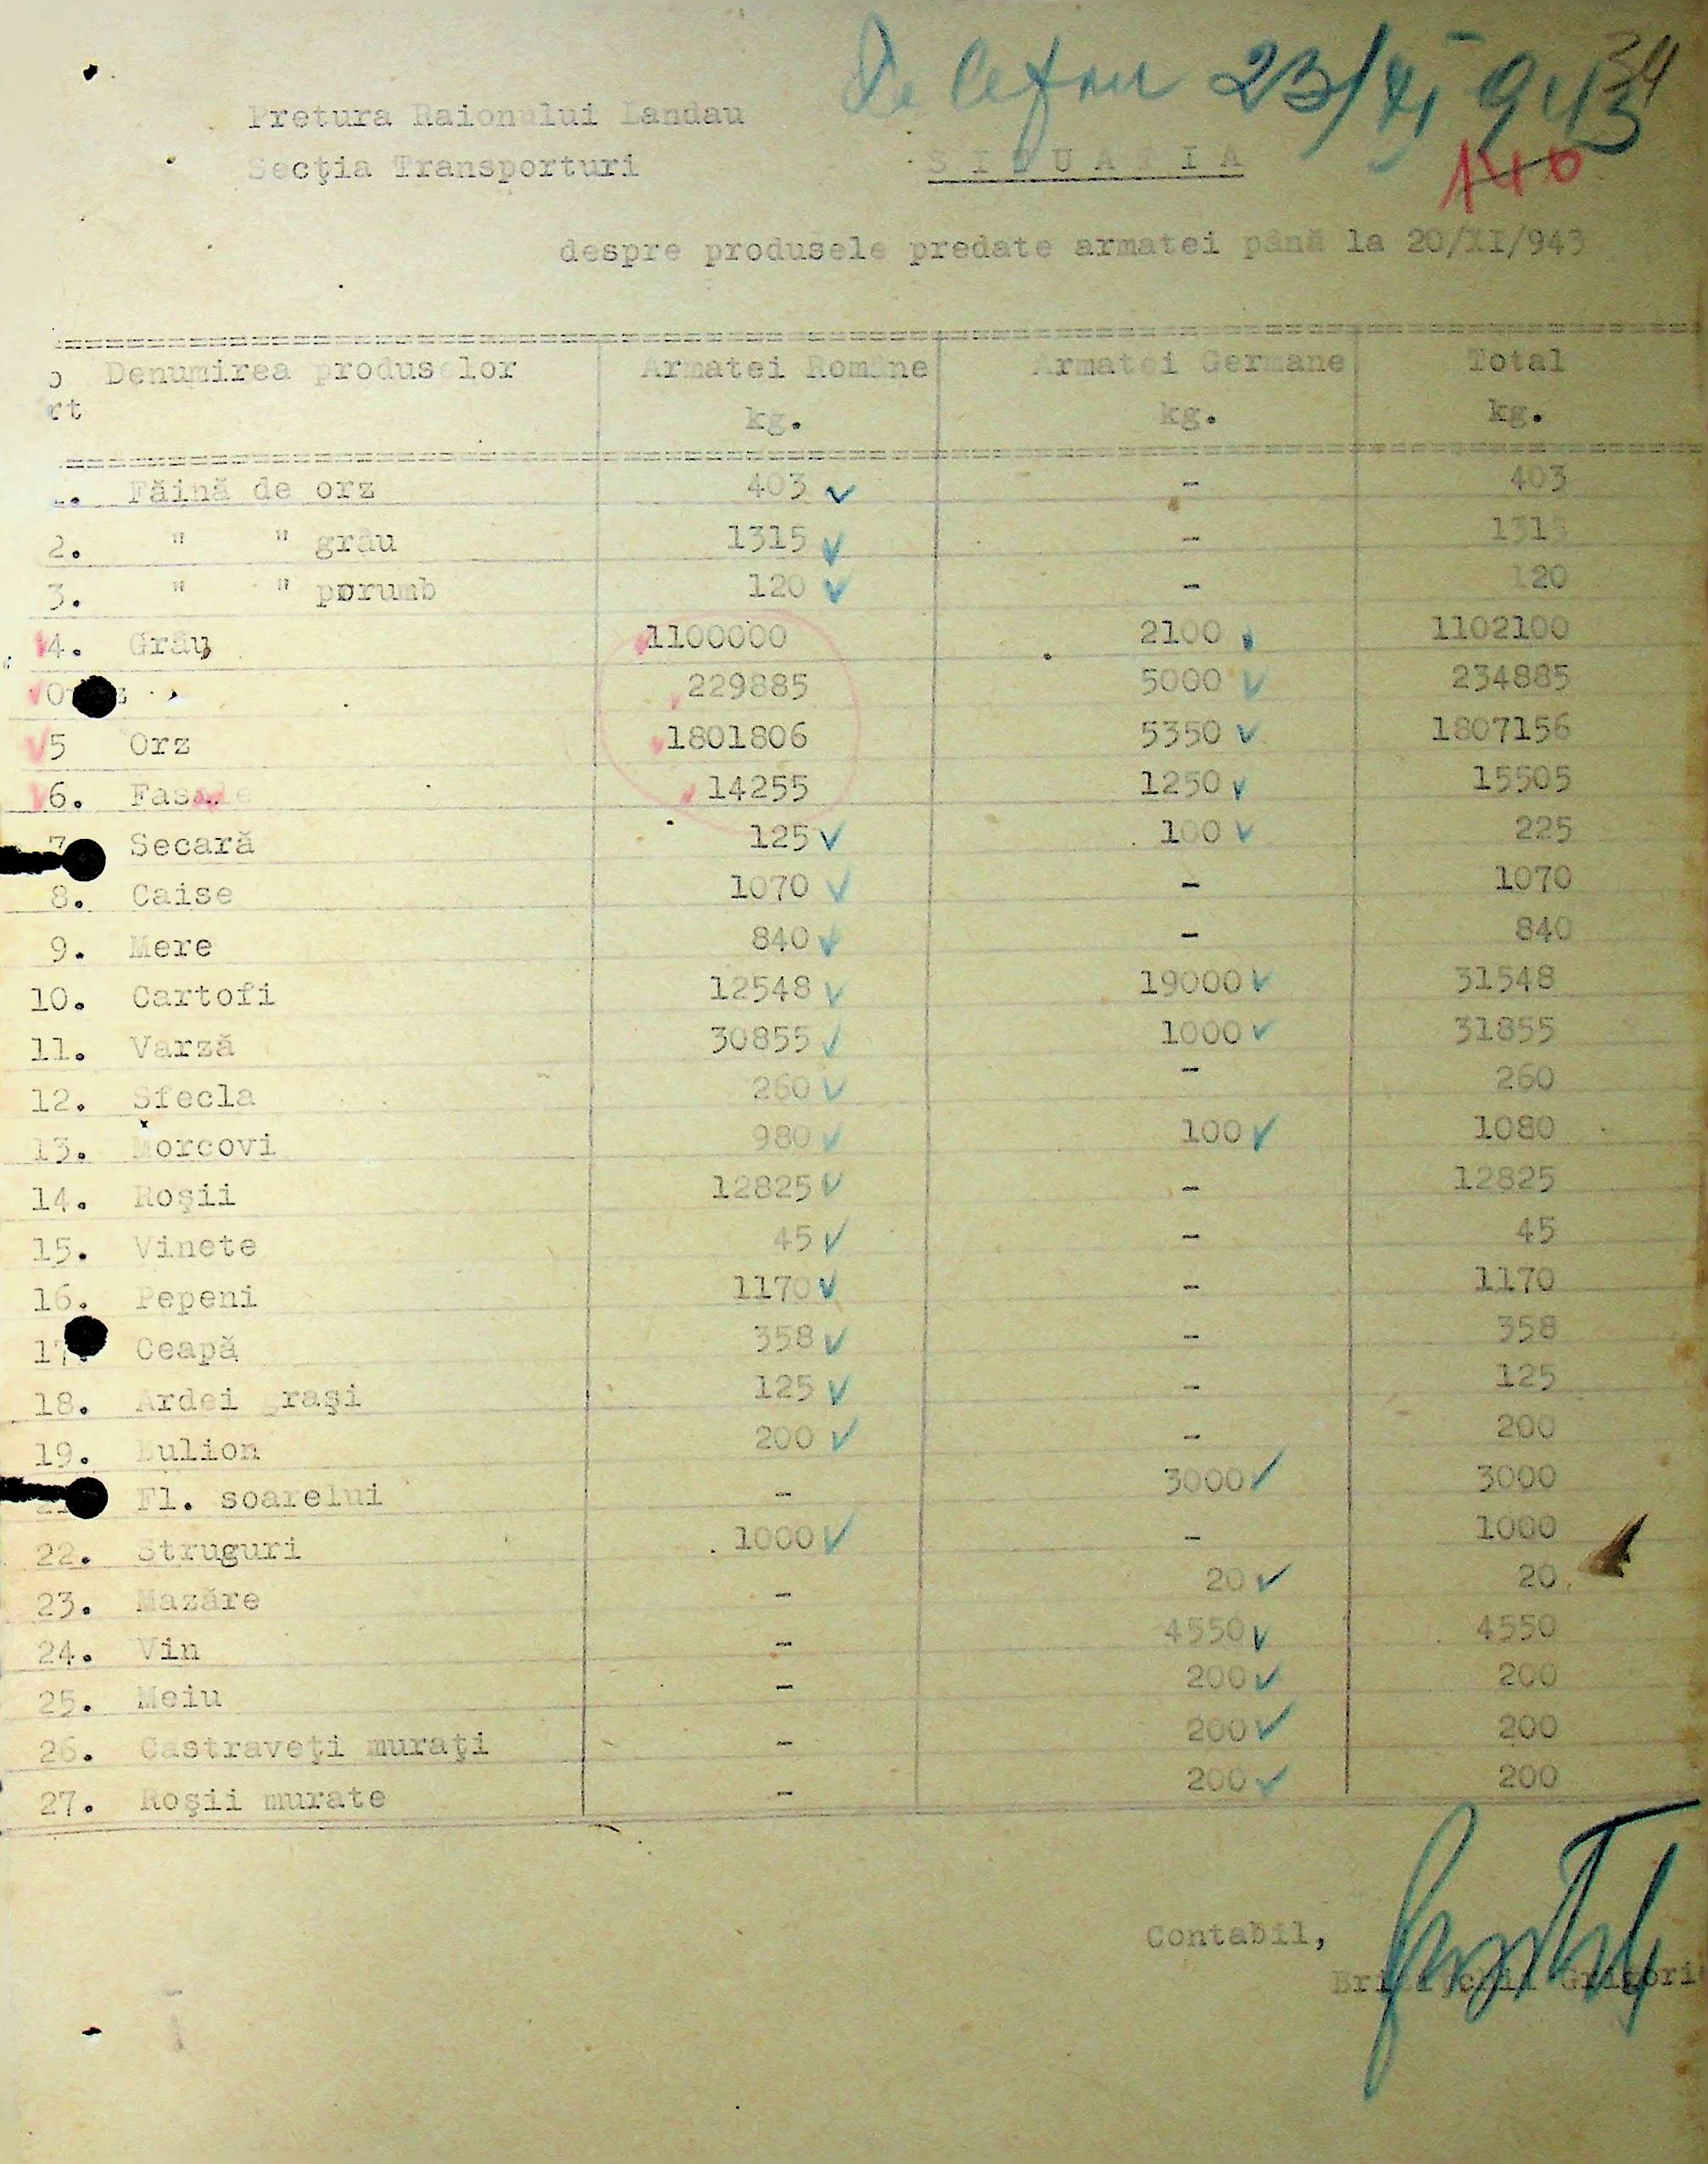 Telefon 23/XI 943
34
140
Pretura Raionului Landau
Secţia Transporturi
SITUATIA
despre produsele predate armatei până la 20/XI/943
Denumirea produselor Armatei Române Armatei Germane Total
rt kg. kg. kg.
Făină de orz 403 - 403
2. " " grâu 1315 - 1315
3. " " porumb 120 - 120
4. Grâu 1100000 2100 1102100
229885 5000 234885
5 Orz 1801806 5350 1807156
6. Fasole 14255 1250 15505
7 Secară 125 100 225
8. Caise 1070 - 1070
9. Mere 840 - 840
10. Cartofi 12548 19000 31548
11. Varză 30855 1000 31855
12. Sfecla 260 - 260
13. Morcovi 980 100 1080
14. Roşii 12825 - 12825
15. Vinete 45 - 45
16. Pepeni 1170 - 1170
17. Ceapă 358 - 358
18. Ardei graşi 125 - 125
19. Bulion 200 - 200
Fl. soarelui - 3000 3000
22. Struguri 1000 - 1000
23. Mazăre - 20 20
24. Vin - 4550 4550
25. Meiu - 200 200
26. Castraveţi muraţi - 200 200
27. Roşii murate - 200 200
Contabil,